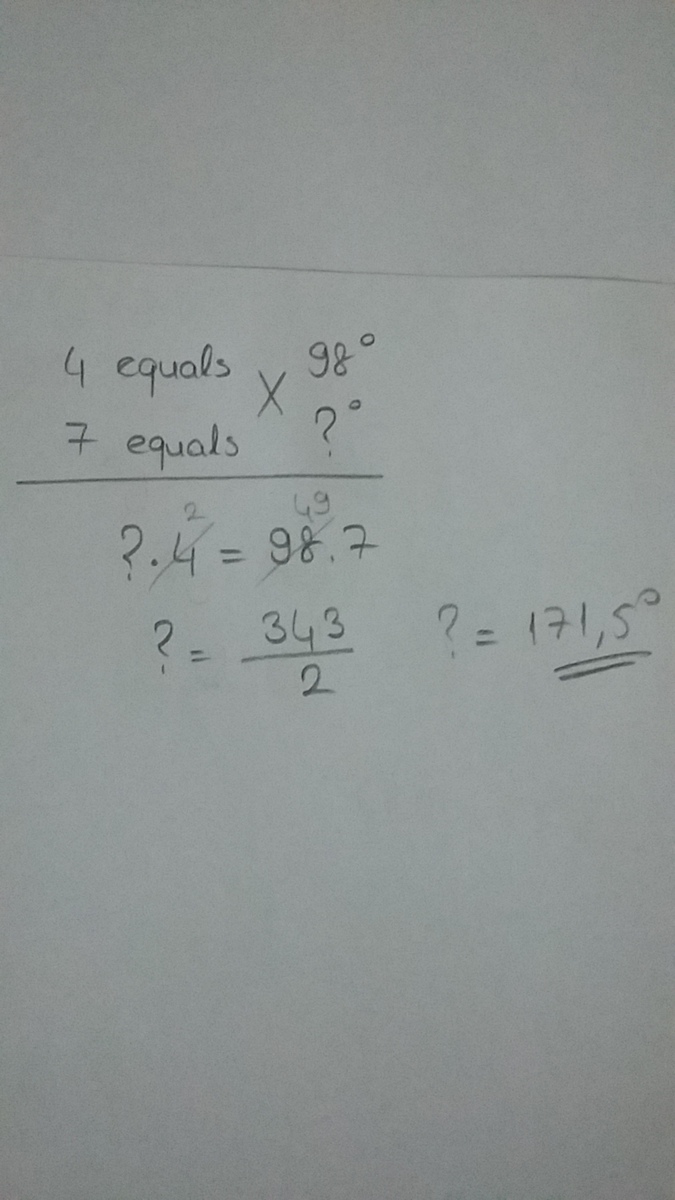 4 equals X 98°
7 equals ?°
2 49
?.4 = 98.7
? = 343/2 ? = 171,5°